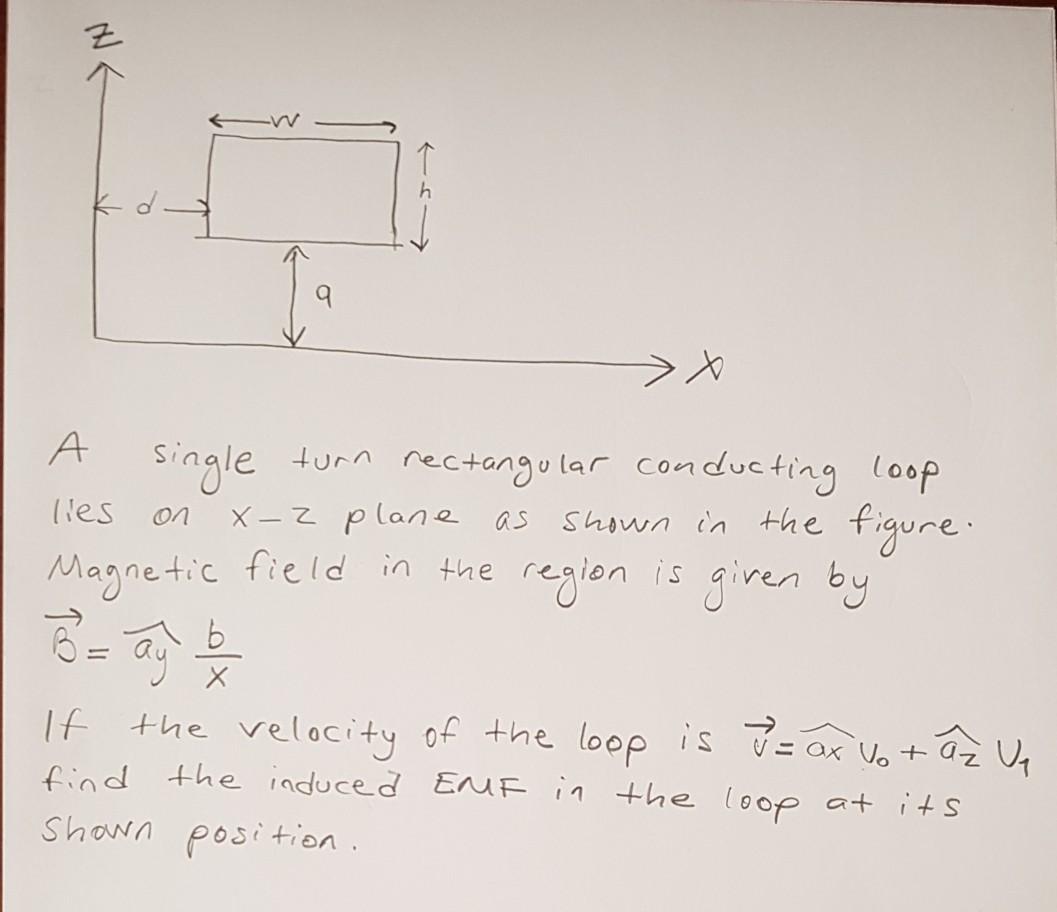 Z
w
h
d
q
X
A single turn rectangular conducting loop
lies on x-z plane as shown in the figure.
Magnetic field in the region is given by
B⃗ = â_y b/x
If the velocity of the loop is v⃗ = â_x V₀ + â_z V₁
find the induced EMF in the loop at its
shown position.